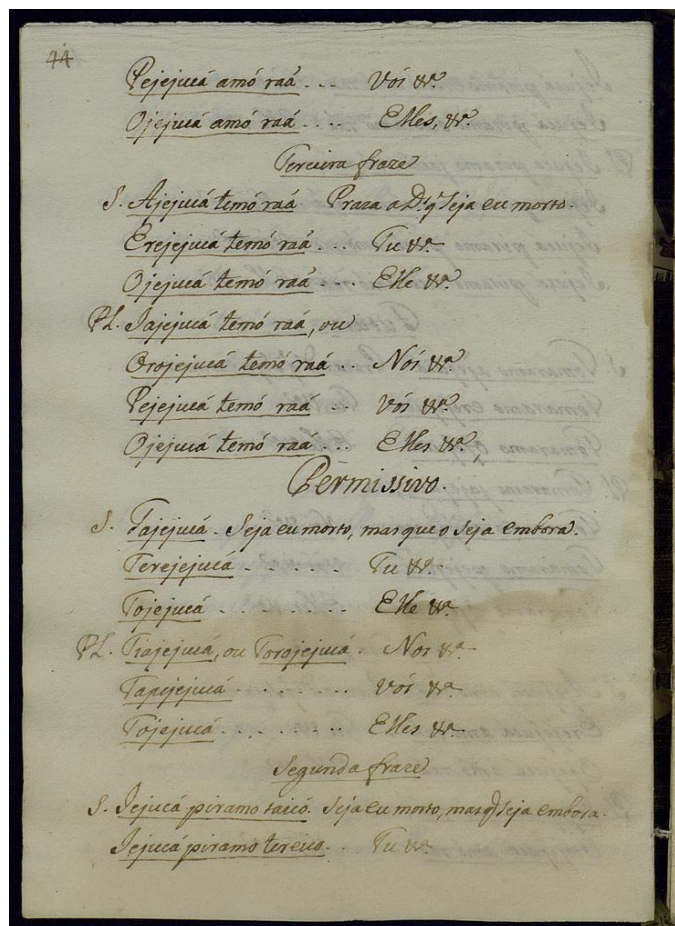 44
Pejejucá amó raá . . . Vós &ª
Ojejucá amó raá . . . . Elles, &ª
Terceira fraze
S. Ajejucá temó raá Praza a Dˢ q̃ Seja eu morto.
Erejejucá temó raá . . . Tu &ª
Ojejucá temó raá . . . Elle &ª
PL. Iajejucá temó raá, ou
Orojejucá temó raá . . Nós &ª
Pejejucá temó raá . . . Vós &ª
Ojejucá temó raá . . . Elles &ª
Permissivo.
S. Tajejucá. Seja eu morto, mas que o seja embora.
Terejejucá . . . . . . Tu &ª
Tojejucá . . . . . . . . Elle &ª
PL. Tiajejucá, ou Torojejucá . Nos &ª
Tapejejucá . . . . . . . Vós &ª
Tojejucá . . . . . . . . Elles &ª
Segunda fraze
S. Jejucá piramo taicó. Seja eu morto, mas q̃ Seja embora.
Jejucá piramo tereico . . Tu &ª